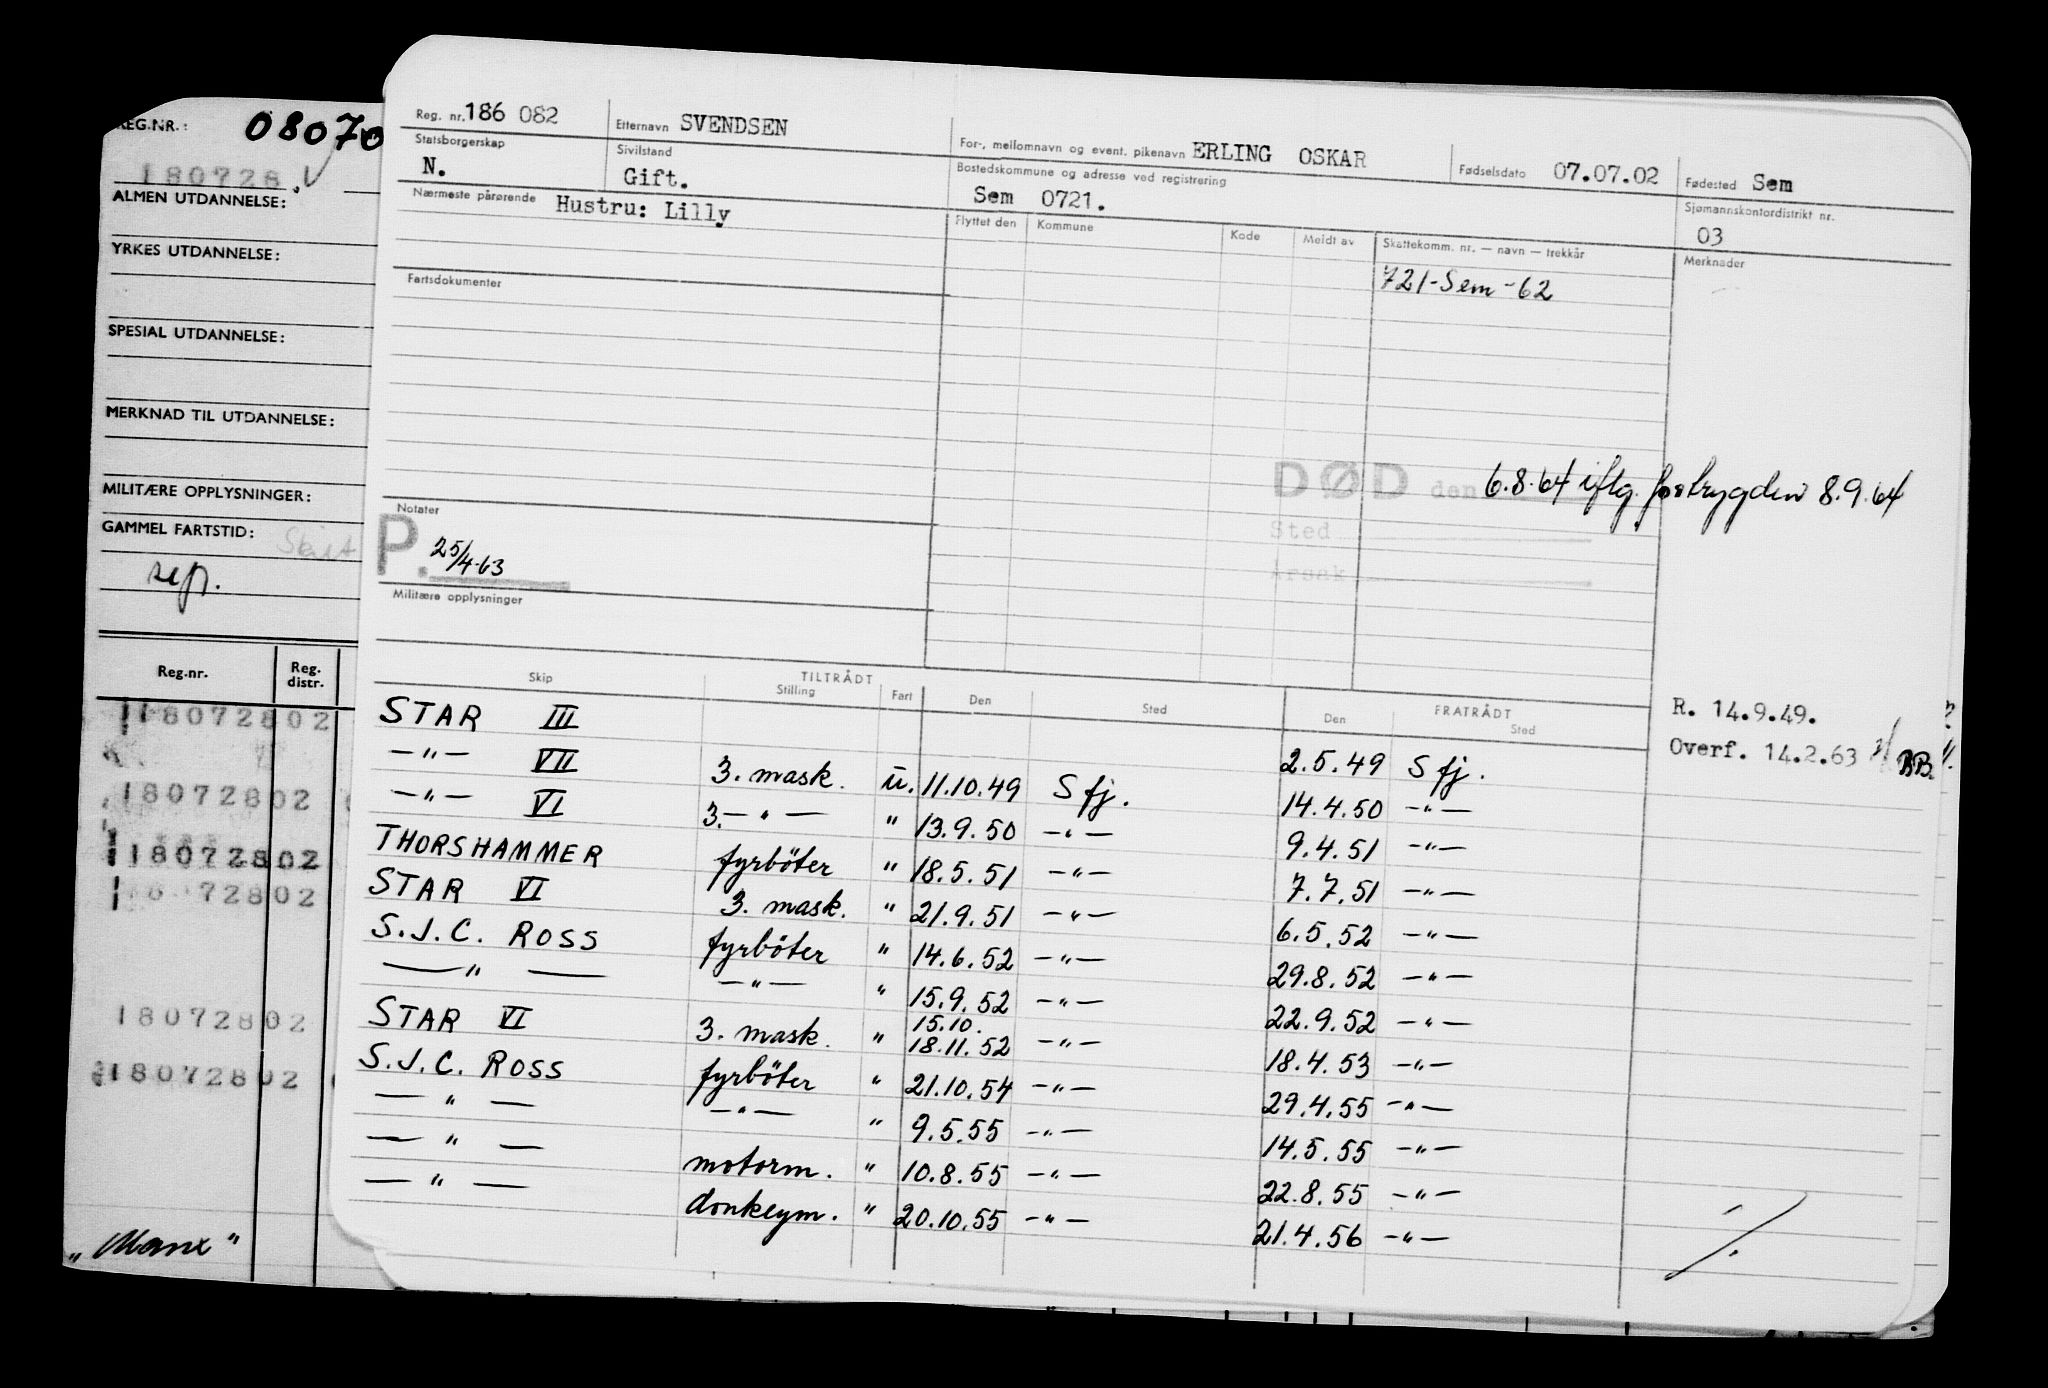 REG.NR.: 08070
180728
ALMEN UTDANNELSE:
YRKES UTDANNELSE:
SPESIAL UTDANNELSE:
MERKNAD TIL UTDANNELSE:
MILITÆRE OPPLYSNINGER:
GAMMEL FARTSTID:
Reg.nr. Reg. distr.
18072802
18072802
18072802
72802
18072802
18072802
Reg. nr. 186 082 Etternavn SVENDSEN For-, mellomnavn og event. pikenavn ERLING OSKAR Fødselsdato 07.07.02 Fødested Sem
Statsborgerskap N. Sivilstand Gift. Bostedskommune og adresse ved registrering Sem 0721. Sjømannskontordistrikt nr. 03
Nærmeste pårørende Hustru: Lilly Flyttet den Kommune Kode Meldt av Skattekomm. nr. — navn — trekkår Merknader
721-Sem-62
Fartsdokumenter
DØD den 6.8.64 iflg. fostrygden 8.9.64
Sted
Årsak
Notater
P. 25/4-63
Militære opplysninger
Skip TILTRÅDT Stilling Fart Den Sted FRATRÅDT Den Sted
R. 14.9.49.
Overf. 14.2.63 BB.
STAR III 2.5.49 S fj.
—"— VII 3. mask. u. 11.10.49 S fj. 14.4.50 —"—
—"— VI 3.—"— " 13.9.50 —"— 9.4.51 —"—
THORSHAMMER fyrböter " 18.5.51 —"— 7.7.51 —"—
STAR VI 3. mask. " 21.9.51 —"— 6.5.52 —"—
S.J.C. ROSS fyrböter " 14.6.52 —"— 29.8.52 —"—
—"— —"— " 15.9.52 —"— 22.9.52 —"—
STAR VI 3. mask. " 15.10. 18.11.52 —"— 18.4.53 —"—
S.J.C. ROSS fyrböter " 21.10.54 —"— 29.4.55 —"—
—"— —"— " 9.5.55 —"— 14.5.55 —"—
—"— motorm. " 10.8.55 —"— 22.8.55 —"—
—"— donkeym. " 20.10.55 —"— 21.4.56 —"—